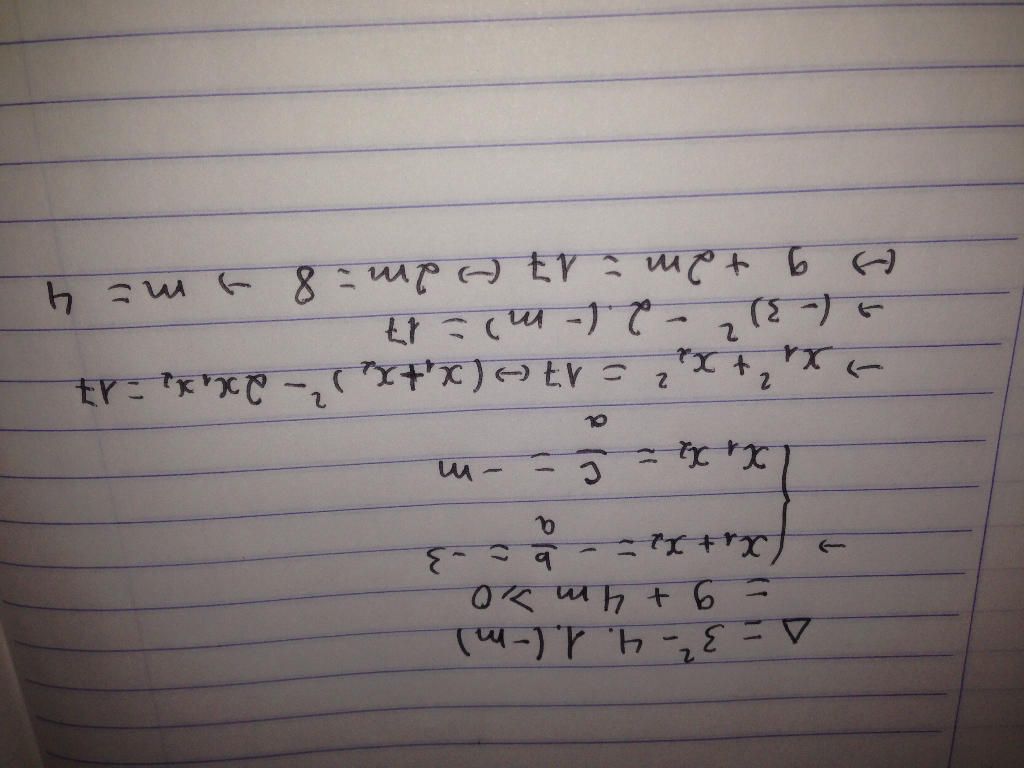 Δ = 3² - 4.1.(-m)
= 9 + 4m ≥ 0
→ { x₁ + x₂ = - b/a = -3
x₁x₂ = c/a = -m
→ x₁² + x₂² = 17 ↔ (x₁+x₂)² - 2x₁x₂ = 17
→ (-3)² - 2.(-m) = 17
↔ 9 + 2m = 17 ↔ 2m = 8 → m = 4